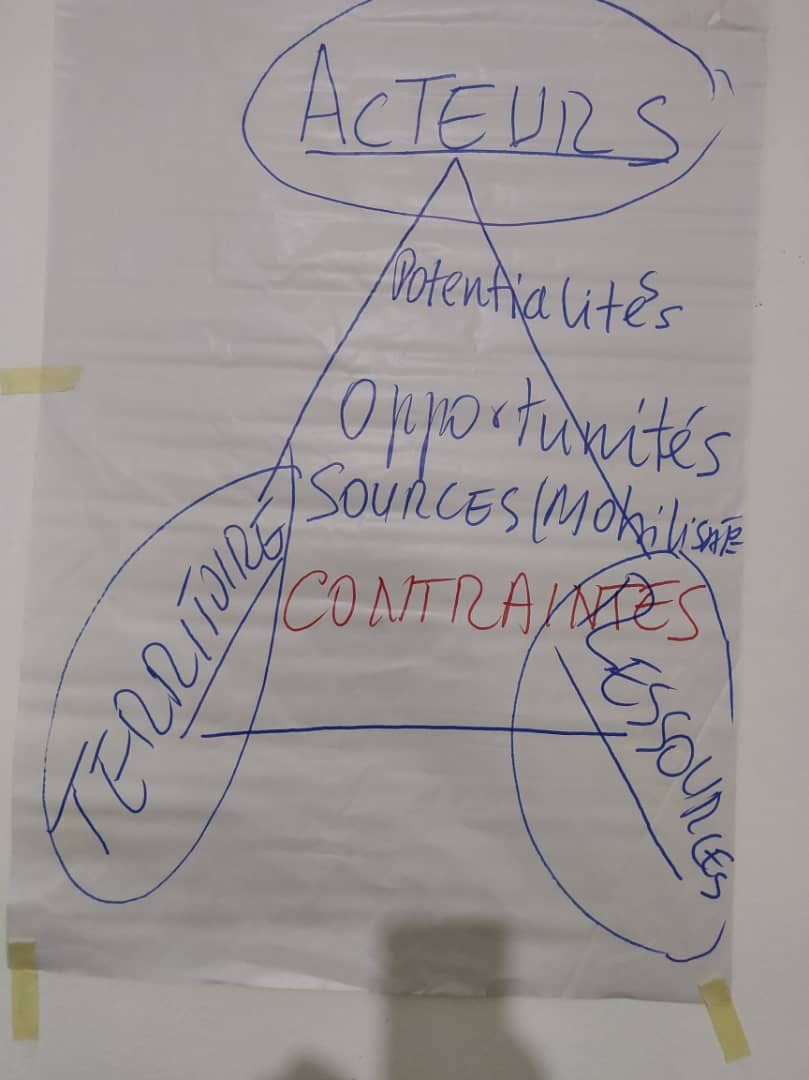 ACTEURS
Potentialités
Opportunités
SOURCES (Mobilisat
CONTRAINTES
TERRITOIRE
RESSOURCES